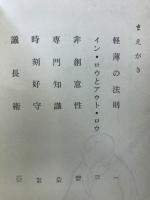 まえがき
軽薄の法則 一
イン・ロウとアウト・ロウ
非創意性
専門知識
時刻好守
議長術